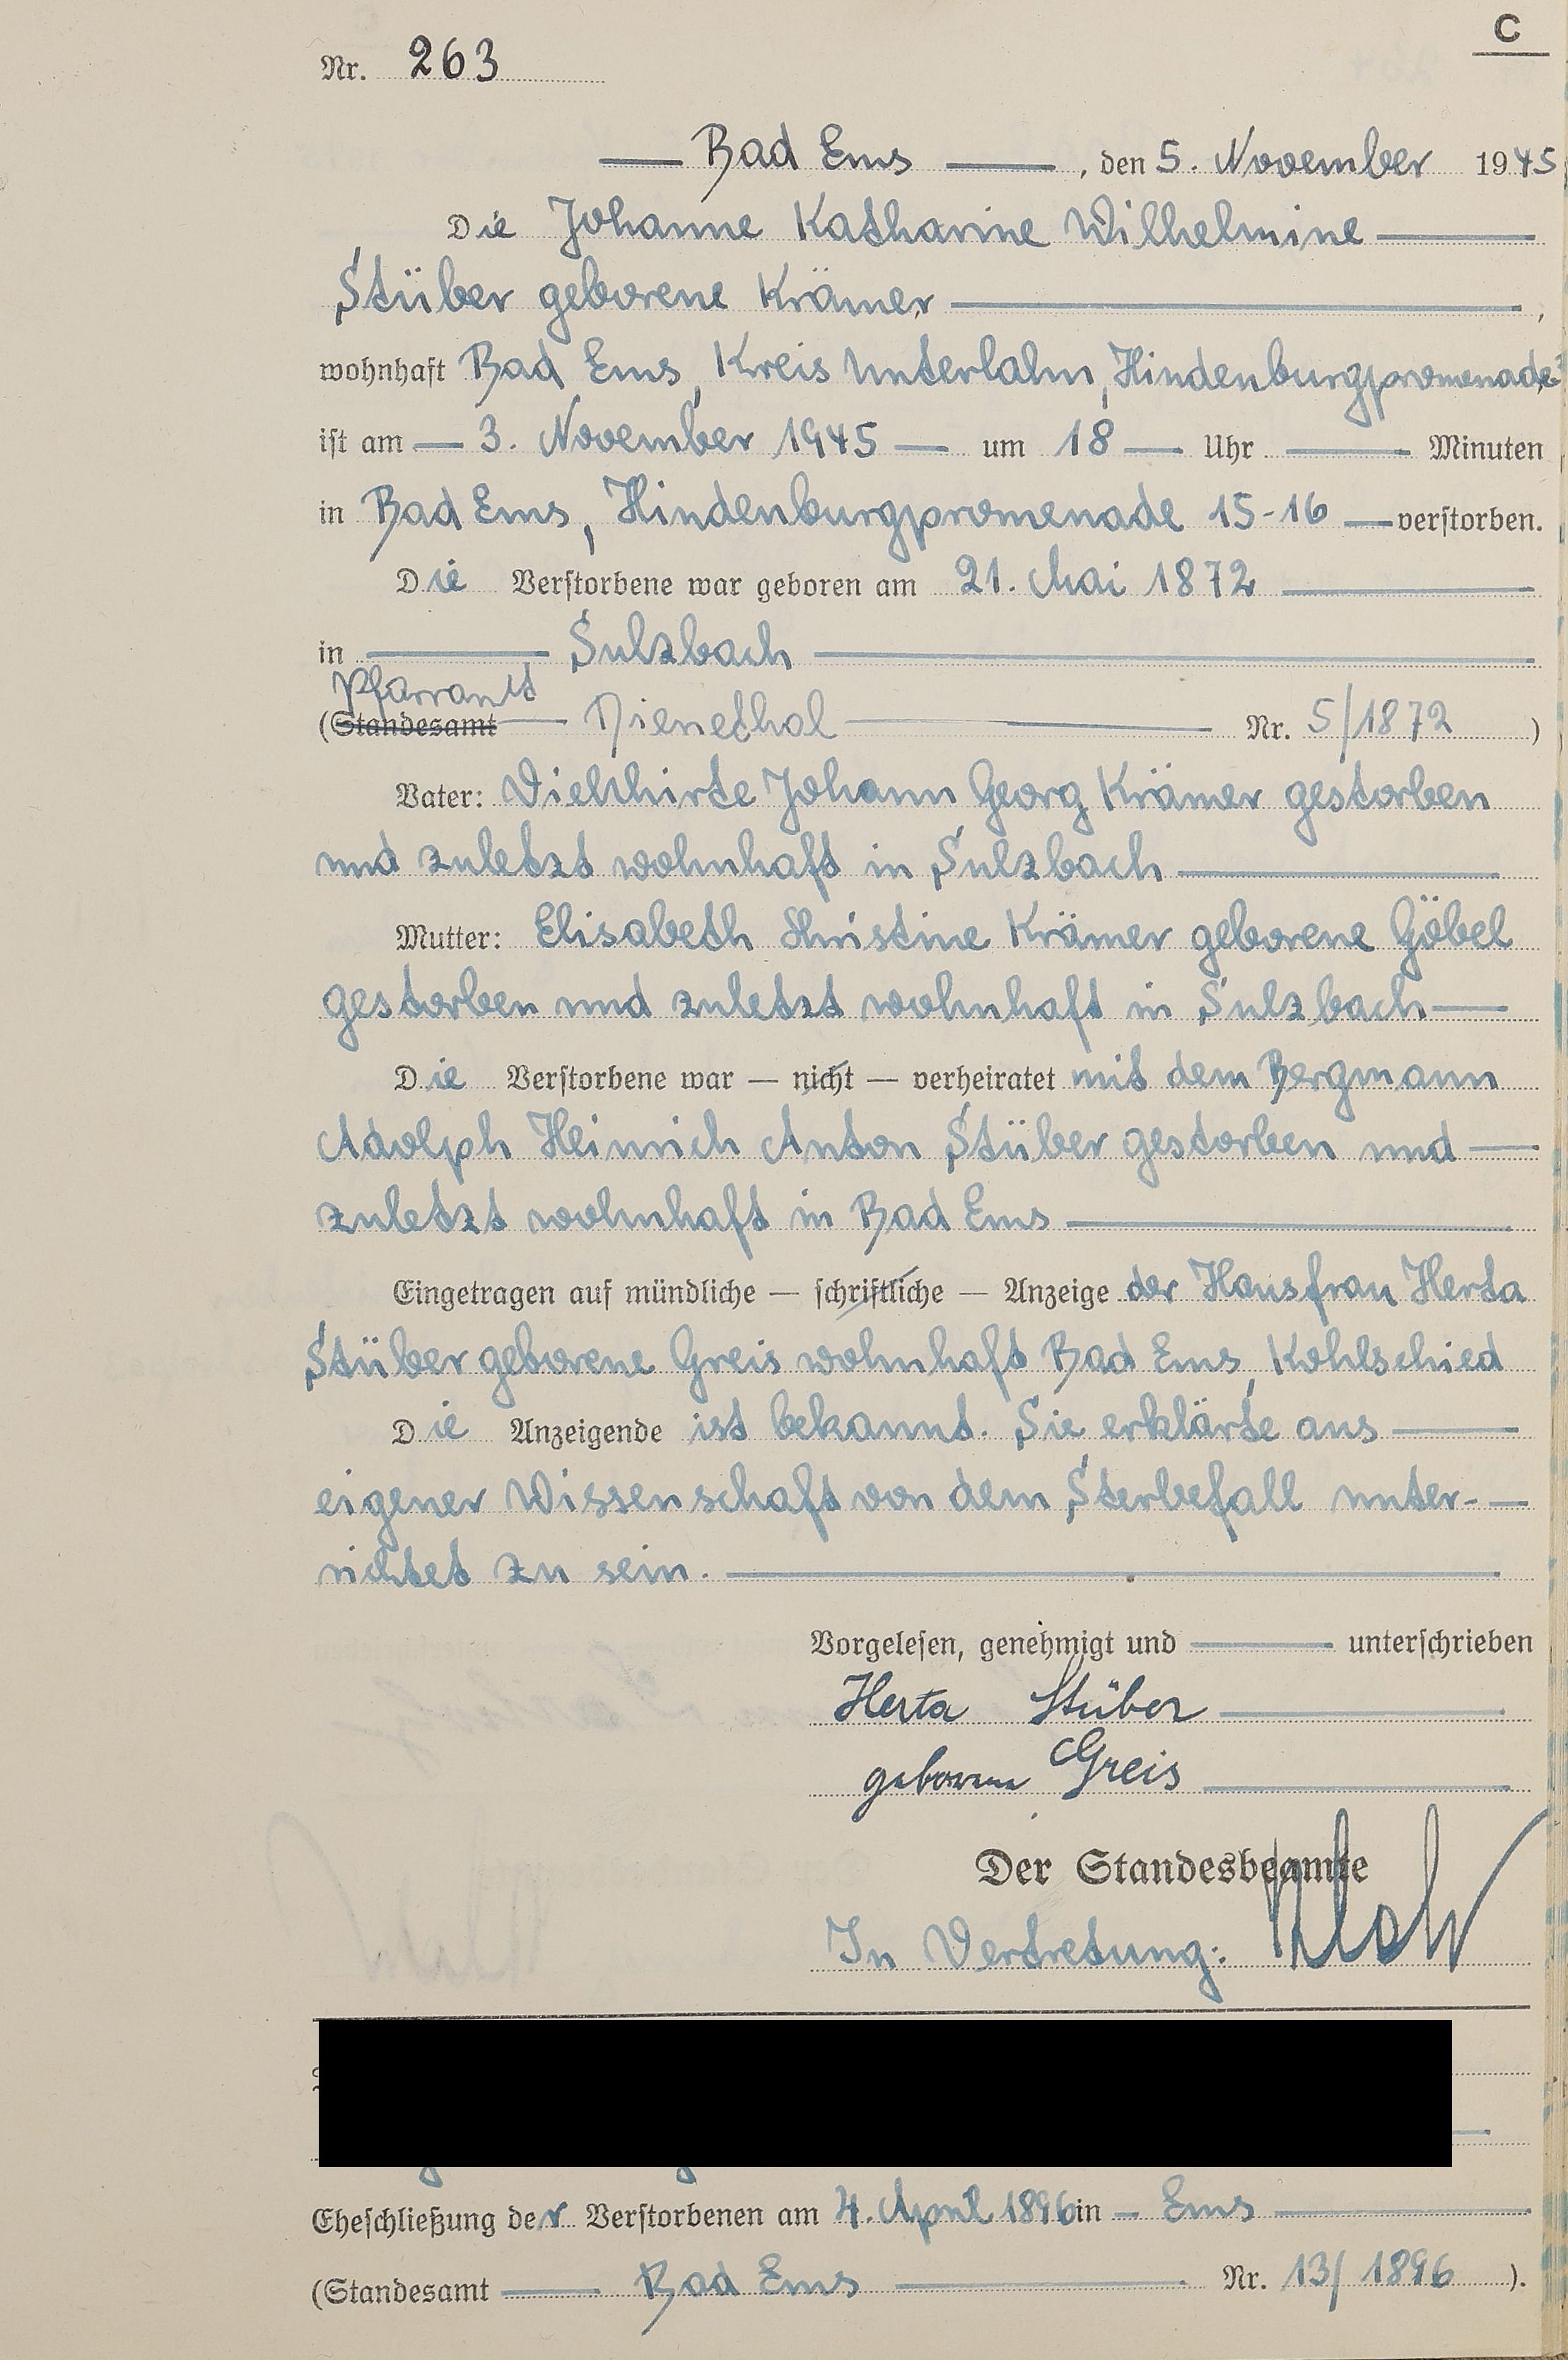 C
Nr. 263
Bad Ems, den 5. November 1945
Die Johanne Katharine Wilhelmine
Stüber geborene Krämer,
wohnhaft Bad Ems, Kreis Unterlahn, Hindenburgpromenade
ist am 3. November 1945 um 18 Uhr Minuten
in Bad Ems, Hindenburgpromenade 15-16 verstorben.
Die Verstorbene war geboren am 21. Mai 1872
in Sulzbach
Pfarramt
(Standesamt Dienethal Nr. 5/1872)
Vater: Viehhirte Johann Georg Krämer gestorben
und zuletzt wohnhaft in Sulzbach
Mutter: Elisabeth Christine Krämer geborene Göbel
gestorben und zuletzt wohnhaft in Sulzbach
Die Verstorbene war — nicht — verheiratet mit dem Bergmann
Adolph Heinrich Anton Stüber gestorben und
zuletzt wohnhaft in Bad Ems
Eingetragen auf mündliche — schriftliche — Anzeige der Hausfrau Herta
Stüber geborene Greis wohnhaft Bad Ems, Kohlschied
Die Anzeigende ist bekannt. Sie erklärte aus
eigener Wissenschaft von dem Sterbefall unter-
richtet zu sein.
Vorgelesen, genehmigt und unterschrieben
Herta Stüber
geborene Greis
Der Standesbeamte
In Vertretung:
Eheschließung der Verstorbenen am 4. April 1896 in Ems
(Standesamt Bad Ems Nr. 13/1896).